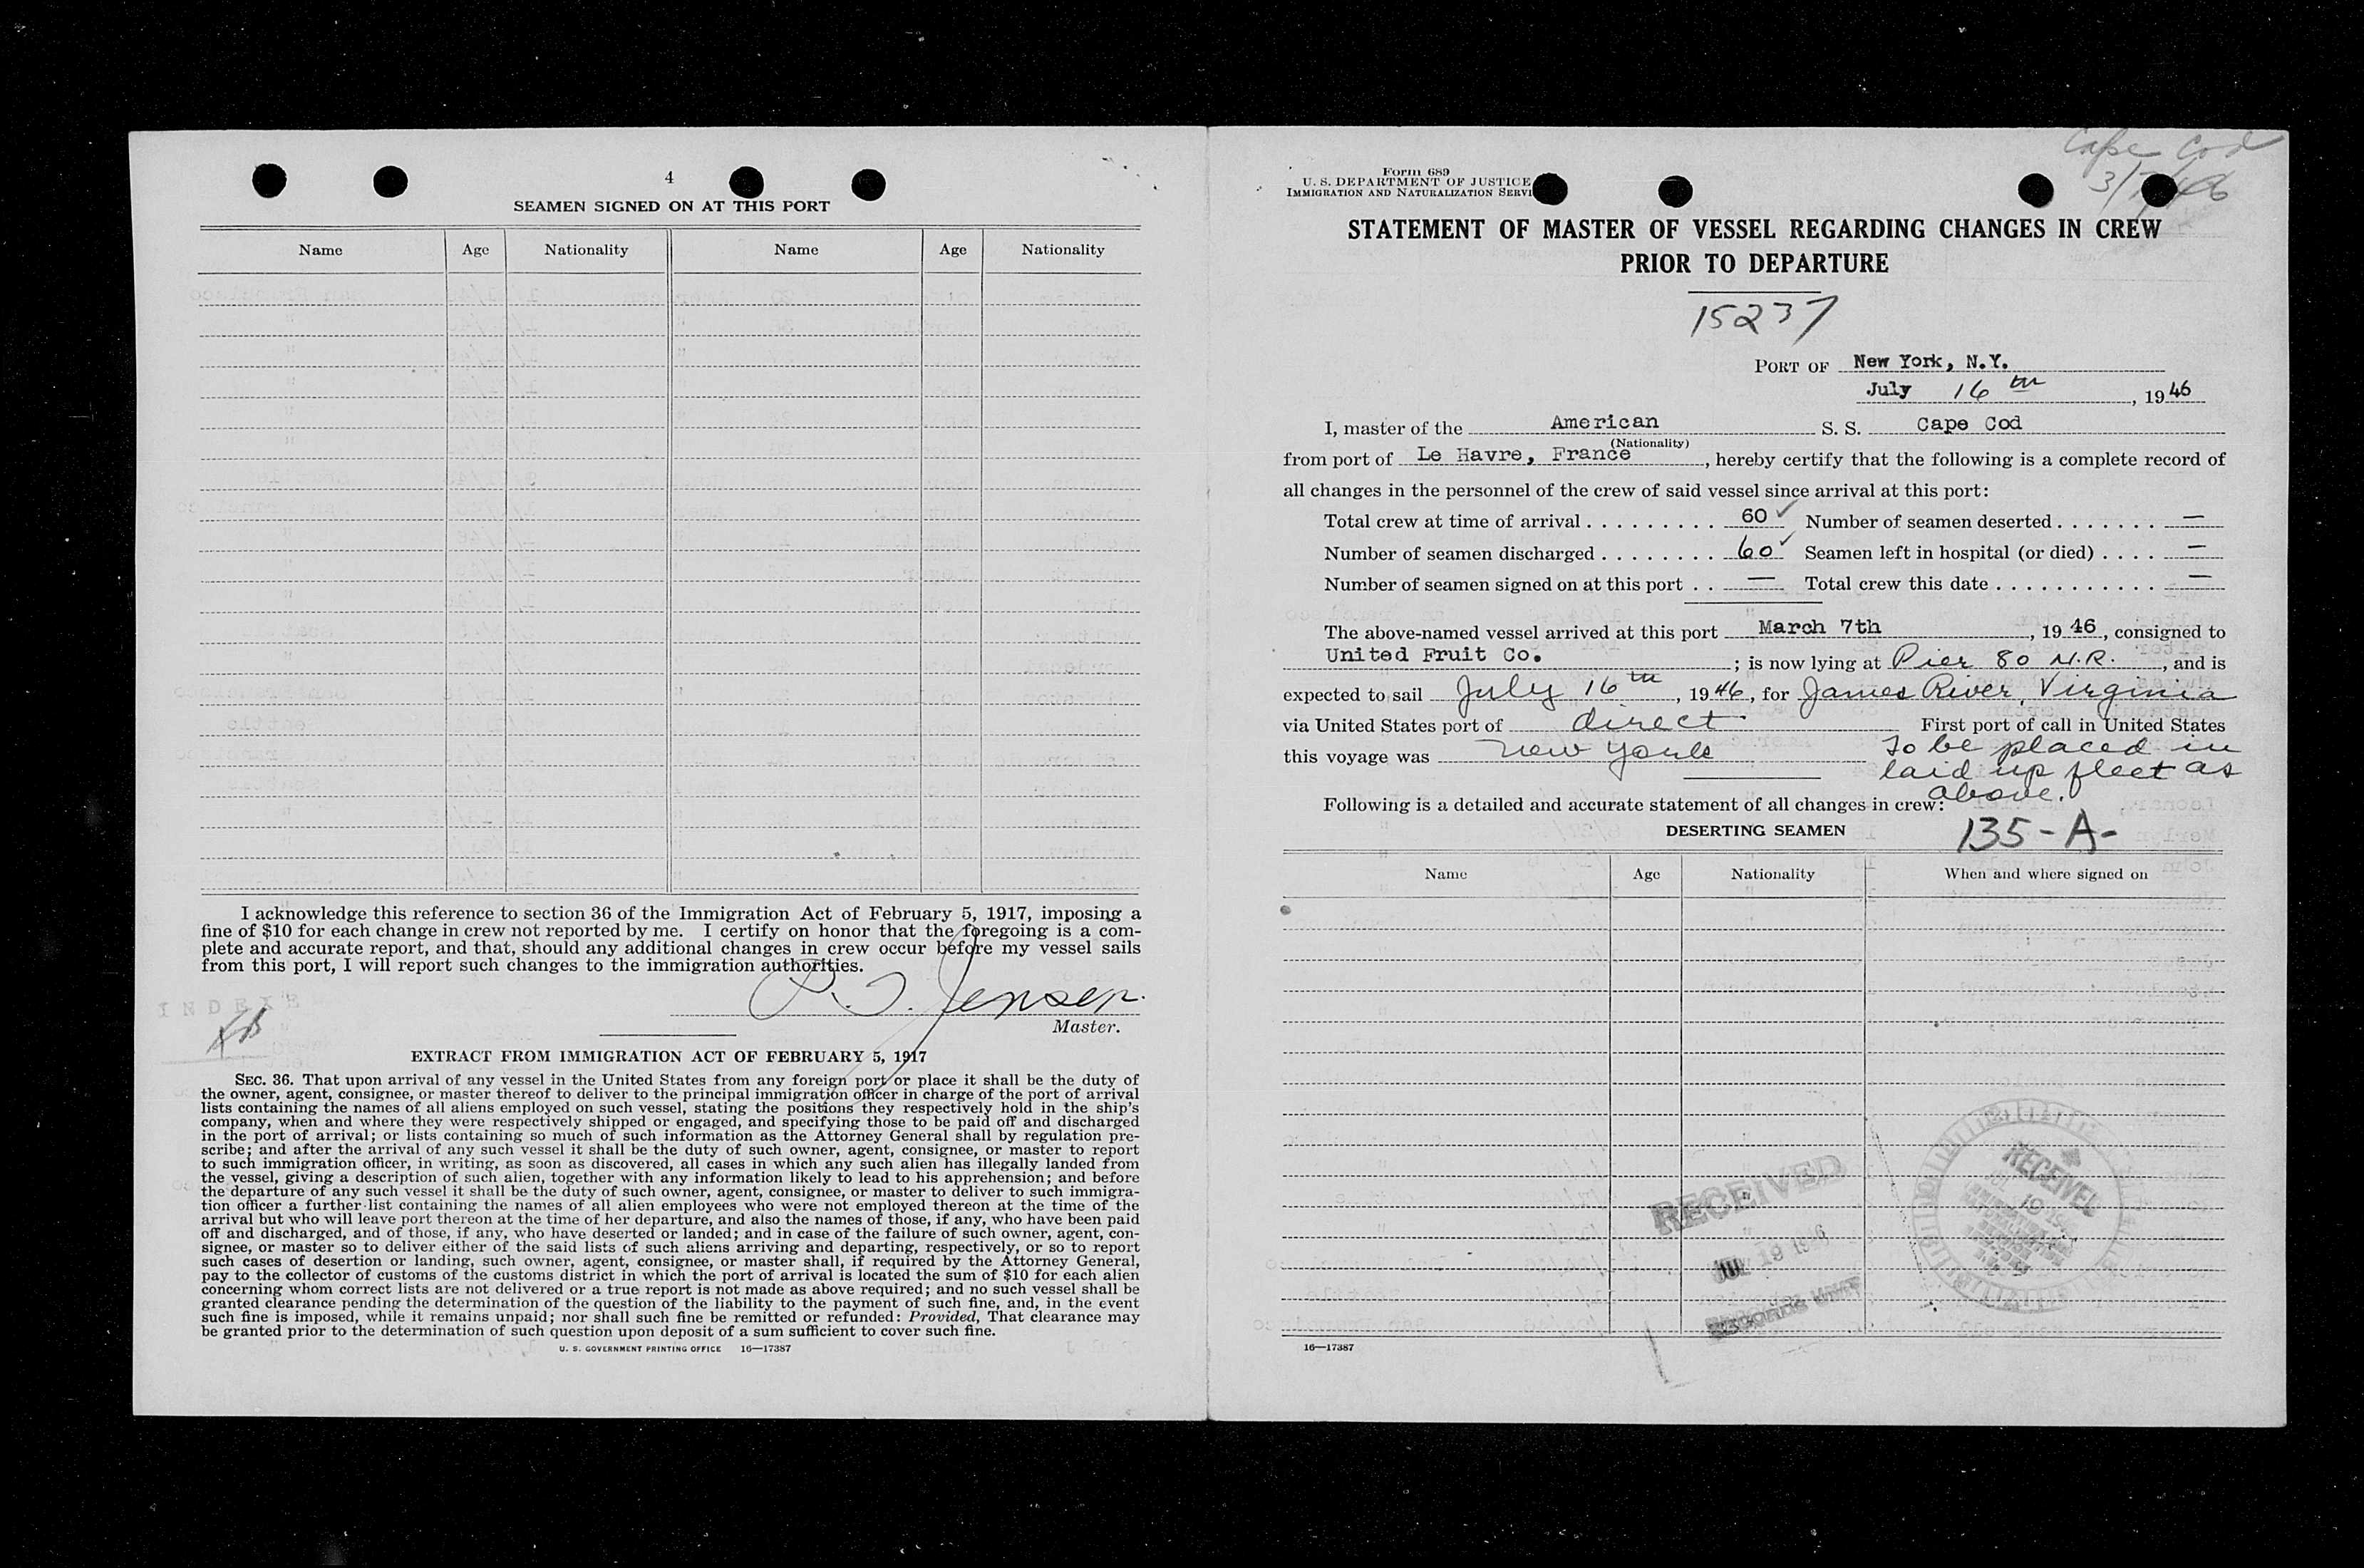 4
SEAMEN SIGNED ON AT THIS PORT
Name Age Nationality Name Age Nationality
I acknowledge this reference to section 36 of the Immigration Act of February 5, 1917, imposing a
fine of $10 for each change in crew not reported by me. I certify on honor that the foregoing is a com-
plete and accurate report, and that, should any additional changes in crew occur before my vessel sails
from this port, I will report such changes to the immigration authorities.
Jensen
Master.
EXTRACT FROM IMMIGRATION ACT OF FEBRUARY 5, 1917
SEC. 36. That upon arrival of any vessel in the United States from any foreign port or place it shall be the duty of
the owner, agent, consignee, or master thereof to deliver to the principal immigration officer in charge of the port of arrival
lists containing the names of all aliens employed on such vessel, stating the positions they respectively hold in the ship's
company, when and where they were respectively shipped or engaged, and specifying those to be paid off and discharged
in the port of arrival; or lists containing so much of such information as the Attorney General shall by regulation pre-
scribe; and after the arrival of any such vessel it shall be the duty of such owner, agent, consignee, or master to report
to such immigration officer, in writing, as soon as discovered, all cases in which any such alien has illegally landed from
the vessel, giving a description of such alien, together with any information likely to lead to his apprehension; and before
the departure of any such vessel it shall be the duty of such owner, agent, consignee, or master to deliver to such immigra-
tion officer a further list containing the names of all alien employees who were not employed thereon at the time of the
arrival but who will leave port thereon at the time of her departure, and also the names of those, if any, who have been paid
off and discharged, and of those, if any, who have deserted or landed; and in case of the failure of such owner, agent, con-
signee, or master so to deliver either of the said lists of such aliens arriving and departing, respectively, or so to report
such cases of desertion or landing, such owner, agent, consignee, or master shall, if required by the Attorney General,
pay to the collector of customs of the customs district in which the port of arrival is located the sum of $10 for each alien
concerning whom correct lists are not delivered or a true report is not made as above required; and no such vessel shall be
granted clearance pending the determination of the question of the liability to the payment of such fine, and, in the event
such fine is imposed, while it remains unpaid; nor shall such fine be remitted or refunded: Provided, That clearance may
be granted prior to the determination of such question upon deposit of a sum sufficient to cover such fine.
U. S. GOVERNMENT PRINTING OFFICE 16—17387
Cape Cod
3/7/46
Form 689
U. S. DEPARTMENT OF JUSTICE
IMMIGRATION AND NATURALIZATION SERVI
STATEMENT OF MASTER OF VESSEL REGARDING CHANGES IN CREW
PRIOR TO DEPARTURE
15237
PORT OF New York, N.Y.
July 16th, 1946
I, master of the American S. S. Cape Cod
(Nationality)
from port of Le Havre, France, hereby certify that the following is a complete record of
all changes in the personnel of the crew of said vessel since arrival at this port:
Total crew at time of arrival . . . . . . . . . 60 ✓ Number of seamen deserted . . . . . . . —
Number of seamen discharged . . . . . . . . 60 ✓ Seamen left in hospital (or died) . . . . —
Number of seamen signed on at this port . . — Total crew this date . . . . . . . . . . . —
The above-named vessel arrived at this port March 7th, 1946, consigned to
United Fruit Co.; is now lying at Pier 80 N.R., and is
expected to sail July 16th, 1946, for James River, Virginia
via United States port of direct. First port of call in United States
this voyage was New York To be placed in
laid up fleet as
above.
Following is a detailed and accurate statement of all changes in crew:
DESERTING SEAMEN 135-A-
Name Age Nationality When and where signed on
RECEIVED
JUL 19 1946
RECORDS UNIT
RECEIVED
19
16—17387